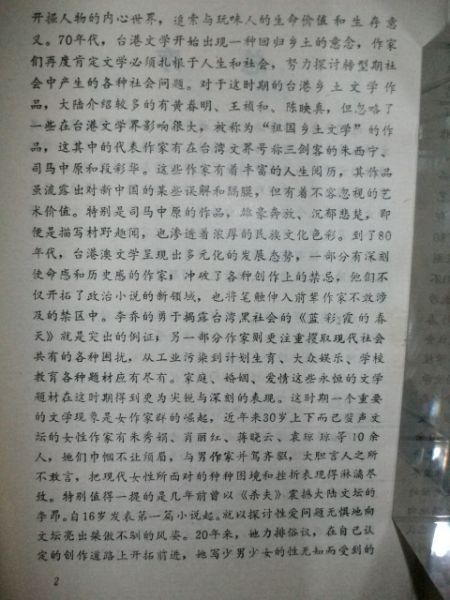 开掘人物的内心世界，追索与玩味人的生命价值和生存意
义。70年代，台港文学开始出现一种回归乡土的意念，作家
们再度肯定文学必须扎根于人生和社会，努力探讨转型期社
会中产生的各种社会问题。对于这时期的台港乡土文学作
品，大陆介绍较多的有黄春明、王祯和、陈映真，但忽略了
一些在台港文学界影响很大，被称为“祖国乡土文学”的作
品，这其中的代表作家有在台湾文界号称三剑客的朱西宁、
司马中原和段彩华。这些作家有着丰富的人生阅历，其作品
虽流露出对新中国的某些误解和隔膜，但有着不容忽视的艺
术价值。特别是司马中原的作品，雄豪奔放、沉郁悲楚，即
便是描写村野趣闻，也渗透着浓厚的民族文化色彩。到了80
年代，台港澳文学呈现出多元化的发展态势，一部分有深刻
使命感和历史感的作家，冲破了各种创作上的禁忌，他们不
仅开拓了政治小说的新领域，也将笔触伸入前辈作家不敢涉
及的禁区中。李乔的勇于揭露台湾黑社会的《蓝彩霞的春
天》就是突出的例证；另一部分作家则更注重摄取现代社会
共有的各种困扰，从工业污染到计划生育、大众娱乐、学校
教育各种题材应有尽有。家庭、婚姻、爱情这些永恒的文学
题材在这时期得到更为尖锐与深刻的表现。这时期一个重要
的文学现象是女作家群的崛起，近年来30岁上下而已蜚声文
坛的女性作家有朱秀娟、肖丽红、蒋晓云、袁琼琼等10余
人，她们巾帼不让须眉，与男作家并驾齐驱，大胆言人之所
不敢言，把现代女性所面对的种种困境和挫折表现得淋漓尽
致。特别值得一提的是几年前曾以《杀夫》震撼大陆文坛的
李昂。自16岁发表第一篇小说起。就以探讨性爱问题无惧地向
文坛亮出桀傲不驯的风姿。20年来，她力排俗议，在自己认
定的创作道路上开拓前进，她写少男少女的性无知而受到的
2